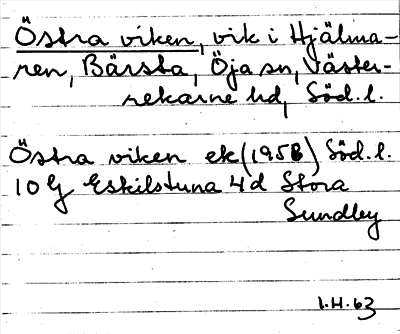 Östra viken, vik i Hjälma-
ren, Bärsta, Öja sn, Väster-
rekarne hd, Söd. l.
Östra viken ek (1958) Söd. l.
10 G Eskilstuna 4d Stora
Sundby
I.H. 63